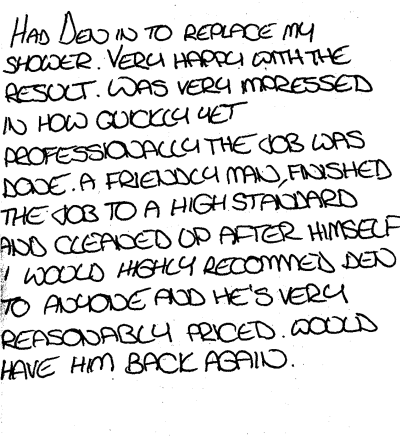 HAD DEN IN TO REPLACE MY
SHOWER. VERY HAPPY WITH THE
RESULT. WAS VERY IMPRESSED
IN HOW QUICKLY YET
PROFESSIONALLY THE JOB WAS
DONE. A FRIENDLY MAN, FINISHED
THE JOB TO A HIGH STANDARD
AND CLEANED UP AFTER HIMSELF
I WOULD HIGHLY RECOMMED DEN
TO ANYONE AND HE'S VERY
REASONABLY PRICED. WOULD
HAVE HIM BACK AGAIN.